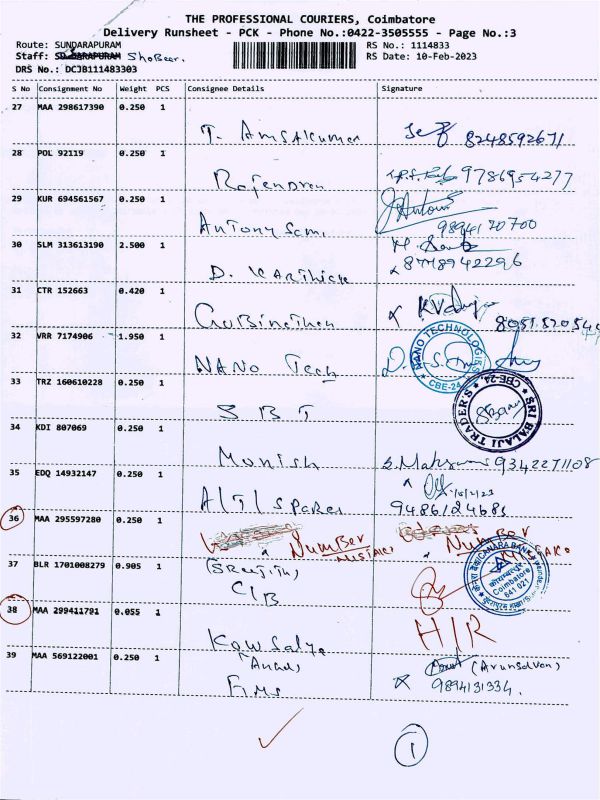 THE PROFESSIONAL COURIERS, Coimbatore
Delivery Runsheet - PCK - Phone No.:0422-3505555 - Page No.:3
Route: SUNDARAPURAM RS No.: 1114833
Staff: SUNDARAPURAM RS Date: 10-Feb-2023
DRS No.: DCJB111483303
S No Consignment No Weight PCS Consignee Details Signature
27 MAA 298617390 0.250 1
T. Amsakumar 8248592671
28 POL 92119 0.250 1
Rajendren 9786954277
29 KUR 694561567 0.250 1
Antony Sami Antony
9894170700
30 SLM 313613190 2.500 1
D. Karthick 87789422296
31 CTR 152663 0.420 1
32 VRR 7174906 1.950 1
NANO Tech NANO TECHNOLOGIES CBE-24
33 TRZ 160610228 0.250 1
SBT SRI BALAJI TRADERS CBE-24
34 KDI 807069 0.250 1
Monish 9342271108
35 EDQ 14932147 0.250 1
9486124681
36 MAA 295597280 0.250 1
Number Number
MISTAKE
37 BLR 1701008279 0.905 1
CIB CANARA BANK
Coimbatore
641 021
38 MAA 299411791 0.055 1
Kowsalya H/R
39 MAA 569122001 0.250 1
(Anand) (Arunselvan)
F.M.S 9894131334.
1